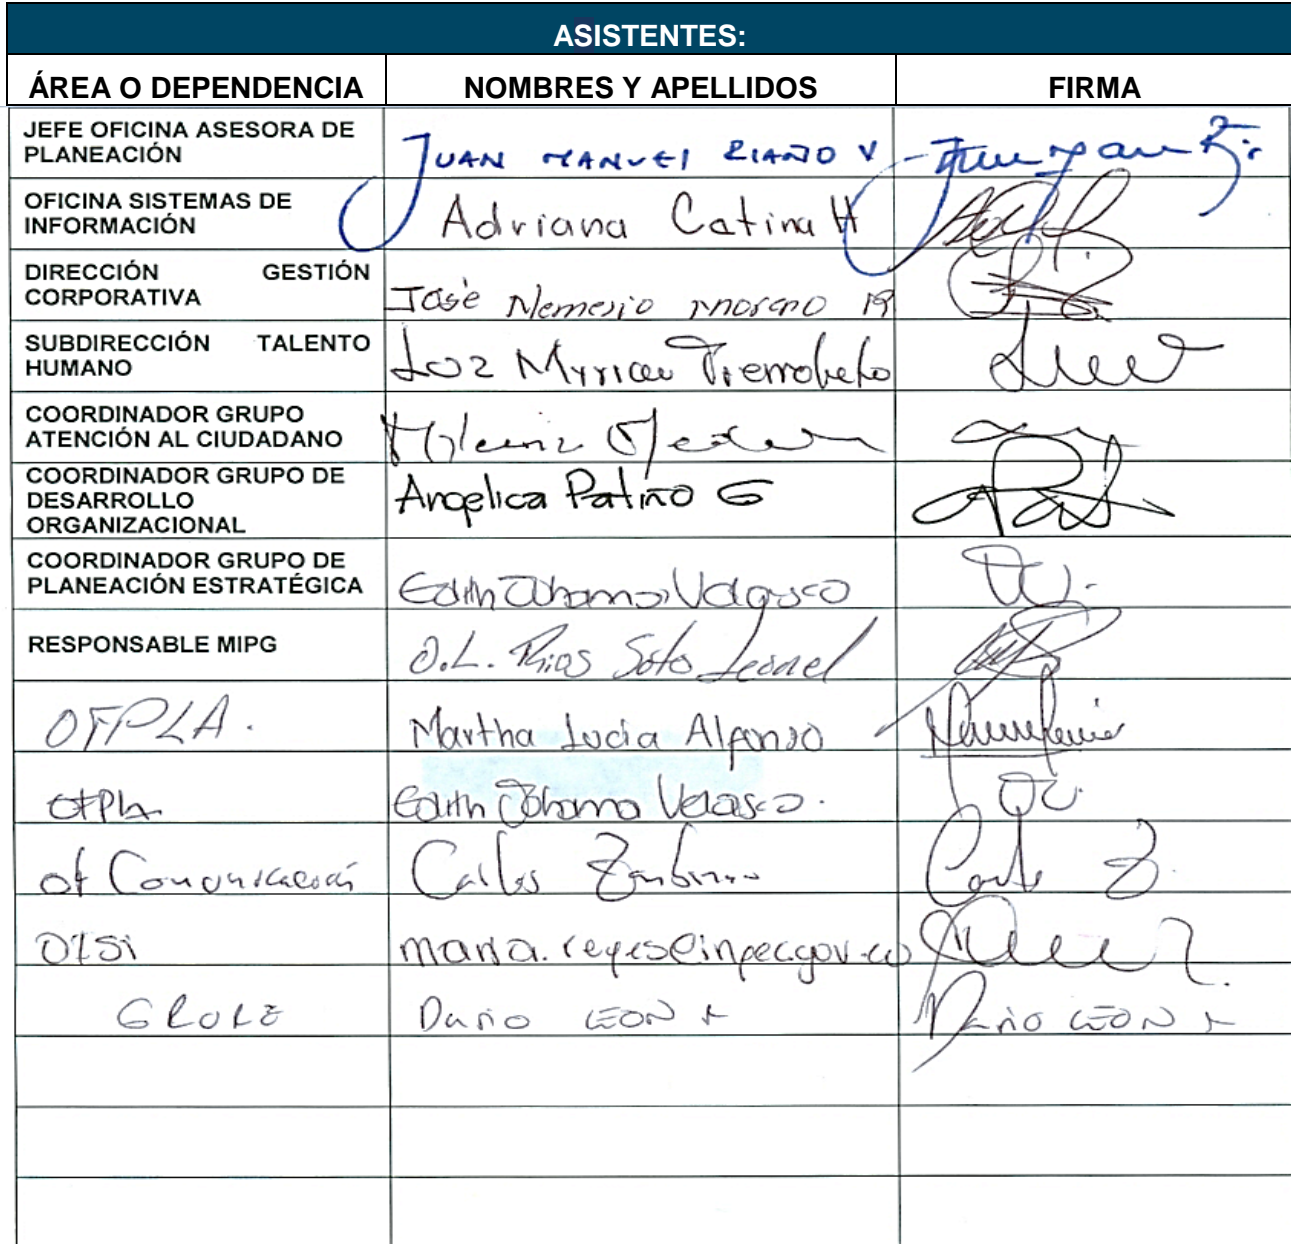 ASISTENTES:
ÁREA O DEPENDENCIA NOMBRES Y APELLIDOS FIRMA
JEFE OFICINA ASESORA DE
PLANEACIÓN
JUAN MANUEL RIAÑO V
OFICINA SISTEMAS DE
INFORMACIÓN
Adriana Catina H
DIRECCIÓN GESTIÓN
CORPORATIVA
José Nemesio moreno R
SUBDIRECCIÓN TALENTO
HUMANO
Luz Myriam
COORDINADOR GRUPO
ATENCIÓN AL CIUDADANO
COORDINADOR GRUPO DE
DESARROLLO
ORGANIZACIONAL
Angelica Patiño G
COORDINADOR GRUPO DE
PLANEACIÓN ESTRATÉGICA
Edith Johanna Velasco
RESPONSABLE MIPG
D.L. Rios Soto Leonel
OFPLA. Martha Lucia Alfonso
OFPLA Edith Johanna Velasco.
of Comunicación Carlos
OFISI maria.reyes@inpec.gov.co
Dario LEON Dario LEON